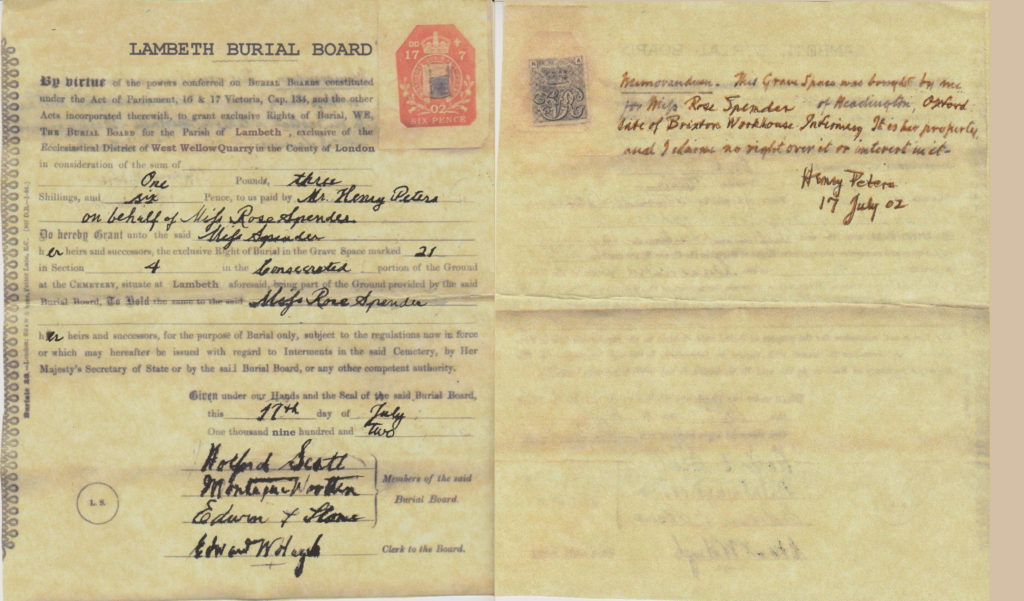 LAMBETH BURIAL BOARD
By virtue of the powers conferred on BURIAL BOARDS constituted
under the Act of Parliament, 16 & 17 Victoria, Cap. 134, and the other
Acts incorporated therewith, to grant exclusive Rights of Burial, WE,
THE BURIAL BOARD for the Parish of Lambeth, exclusive of the
Ecclesiastical District of West Wellow Quarry in the County of London
in consideration of the sum of
One Pounds, three
Shillings, and six Pence, to us paid by Mr. Henry Peters
on behalf of Miss Rose Spender
Do hereby Grant unto the said Miss Spender
her heirs and successors, the exclusive Right of Burial in the Grave Space marked 21
in Section 4 in the Consecrated portion of the Ground
at the CEMETERY, situate at Lambeth aforesaid, being part of the Ground provided by the said
Burial Board, To Hold the same to the said Miss Rose Spender
her heirs and successors, for the purpose of Burial only, subject to the regulations now in force
or which may hereafter be issued with regard to Interments in the said Cemetery, by Her
Majesty's Secretary of State or by the said Burial Board, or any other competent authority.
Given under our Hands and the Seal of the said Burial Board,
this 17th day of July
One thousand nine hundred and two
Holford Scott
Montague Wootten
Edwin
Edward W Hugh
Members of the said
Burial Board.
Clerk to the Board.
L. S.
17 7
02
SIX PENCE
Memorandum. This Grave Space was bought by me
for Miss Rose Spender of Headington, Oxford
late of Brixton Workhouse Infirmary. It is her property
and I claim no right over it or interest in it-
Henry Peters
17 July 02